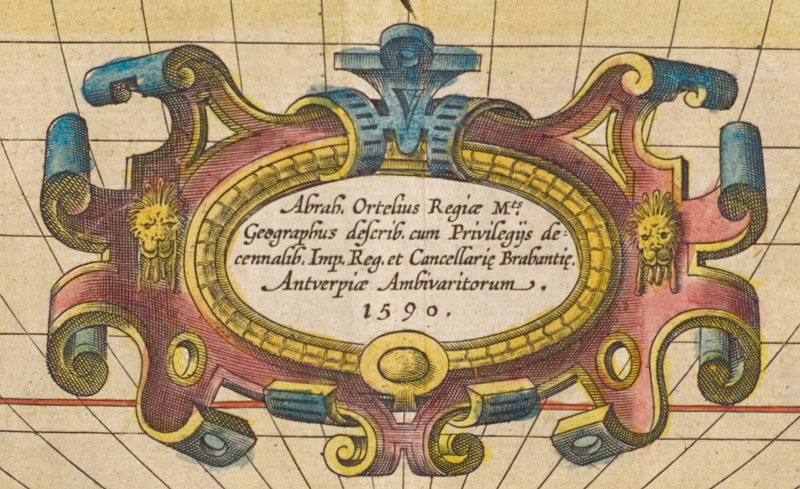 Abrah. Ortelius Regiæ Mᵗˢ.
Geographus describ. cum Privilegijs de=
cennalib. Imp. Reg. et Cancellarię Brabantię.
Antverpiæ Ambivaritorum.
1590.